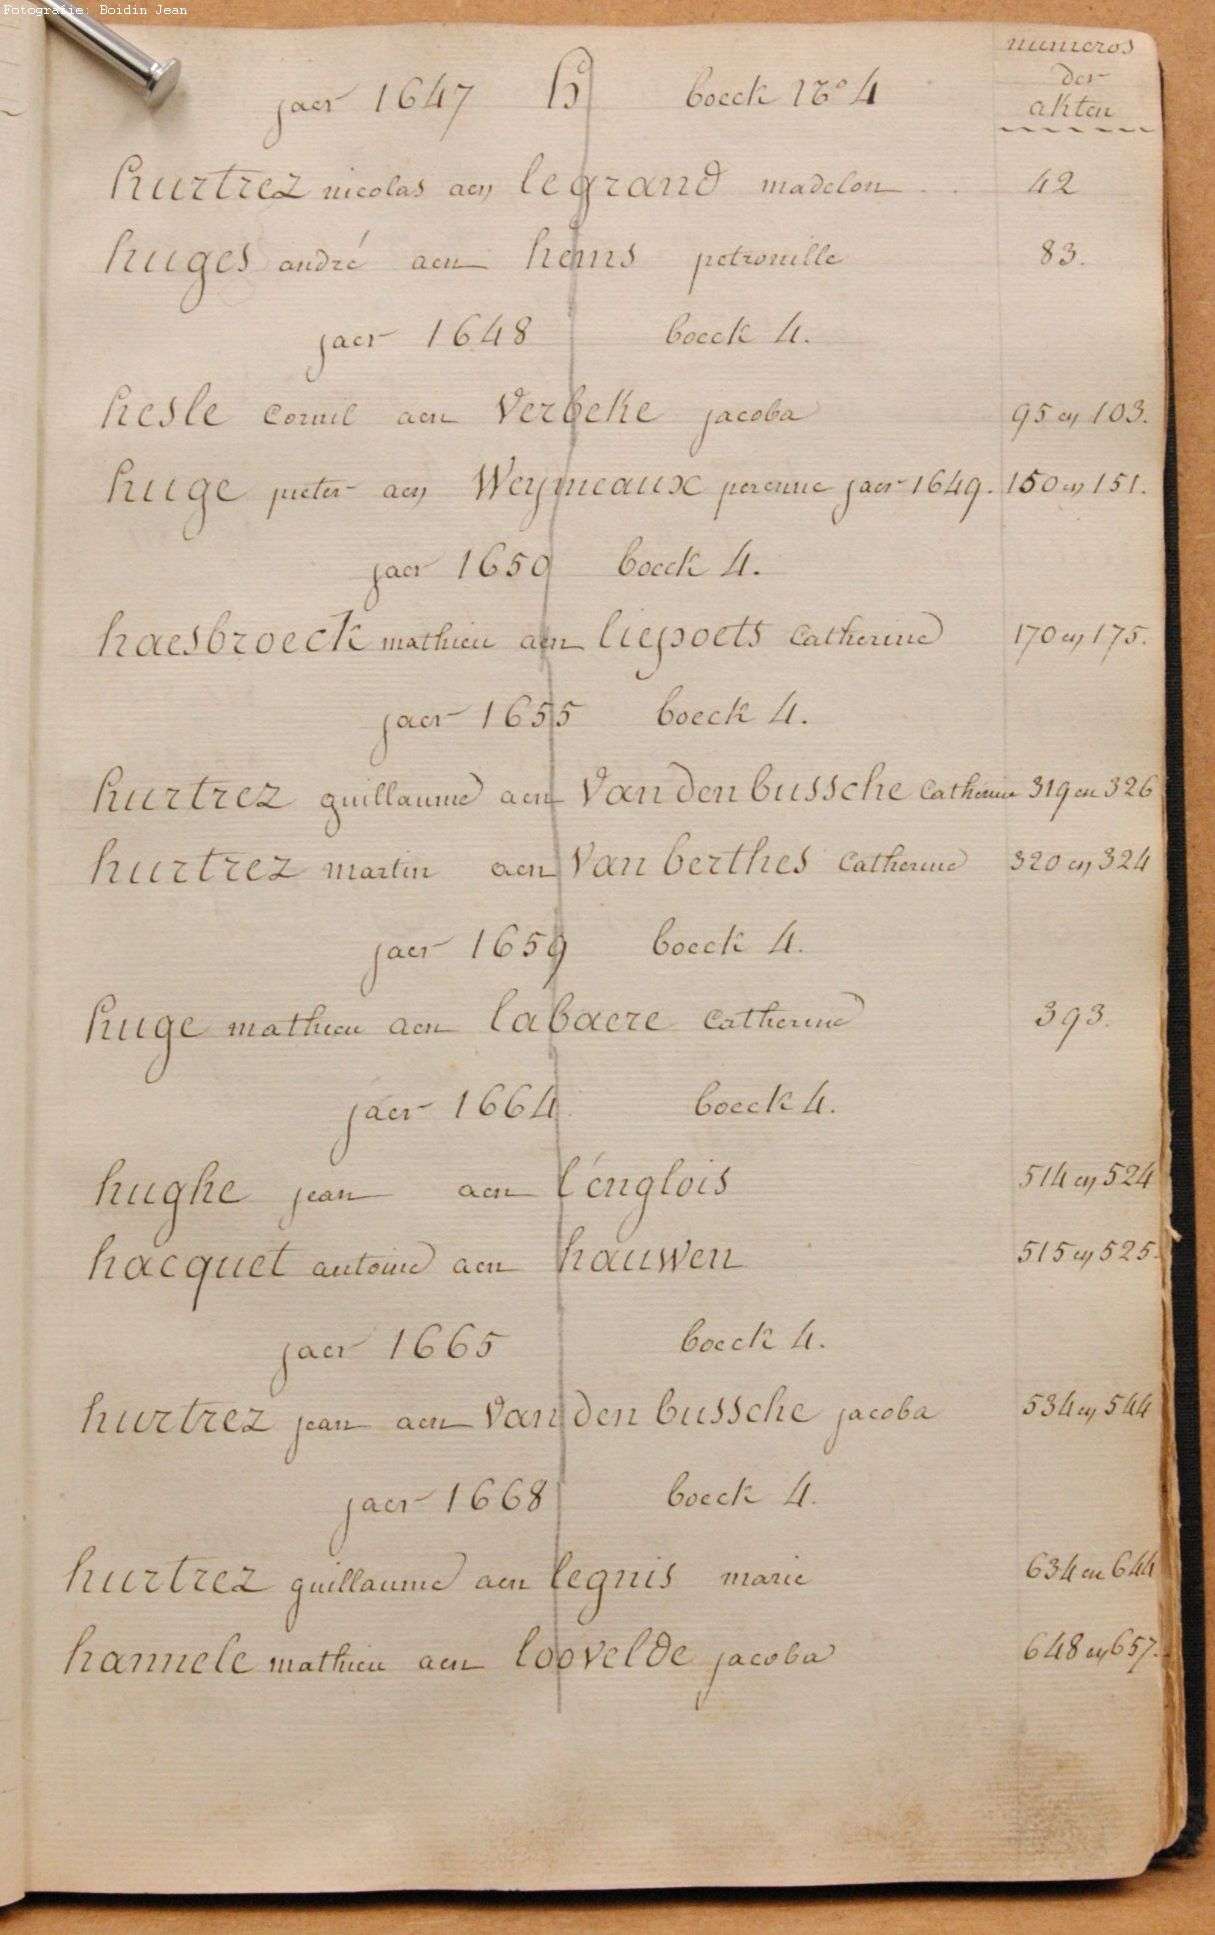 Fotografie: Boidin Jean
jaer 1647 H boeck No 4
numeros
der
akten
hurtrez nicolas aen legrand madelon 42
huges andré aen hems petronille 83.
jaer 1648 boeck 4.
hesle cornil aen Verbeke jacoba 95 en 103.
huge pieter aen Weymeaux perenne jaer 1649. 150 en 151.
jaer 1650 boeck 4.
haesbroeck mathieu aen liepoets catherine 170 en 175.
jaer 1655 boeck 4.
hurtrez guillaume aen Van den bussche catherine 319 en 326
hurtrez martin aen Van berthes catherine 320 en 324
jaer 1659 boeck 4.
huge mathieu aen labaere catherine 393.
jaer 1664 boeck 4.
hughe jean aen l'énglois 514 en 524
hacquet antoine aen hauwen 515 en 525.
jaer 1665 boeck 4.
hurtrez jean aen Van den bussche jacoba 534 en 544
jaer 1668 boeck 4.
hurtrez guillaume aen legnis marie 634 en 644
hannele mathieu aen loovelde jacoba 648 en 657.